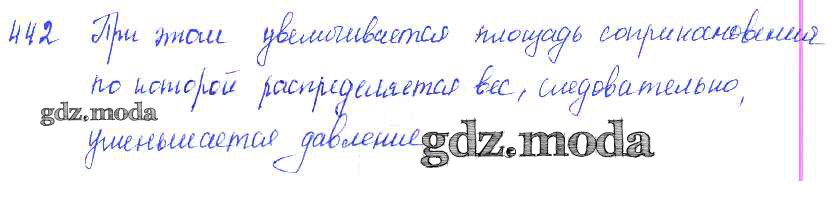 442 При этом увеличивается площадь соприкановения
по которой распределяется вес, следовательно,
gdz.moda
уменьшается давление
gdz.moda